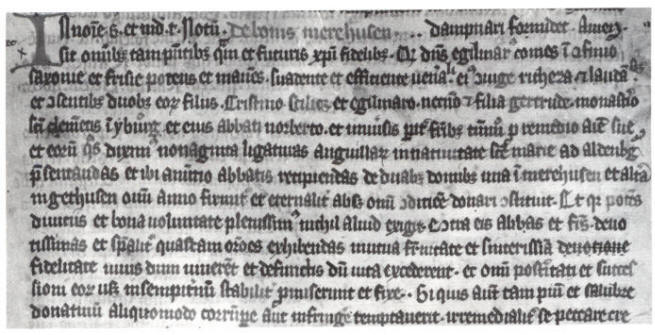 In noīe s. et ind. t. Notū De bonis merehusen . . dampnari formidet. Amen.
sit omībȝ tam pn̄tibȝ qm̄ et futuris xpi fidelibȝ. Qr dn̄s egilmarꝰ comes ī ɔfinio
saxonie et frisie potens et manēs. suadente et efficiente uenaˡⁱ eiꝰ ɔiuge richeza ⁊ laudātibꝰ
et ɔsentītibȝ duobȝ eoꝝ filiis. Cristino scilicȝ et egilmaro. necnō ⁊ filia gertrude. monastio
sc̄i clemētis ī yburg. et eius abbati norberto. et uniūsis pīt frībȝ p remedio aīe sue
et eorū dixim nonaginta ligaturas anguillaꝝ in natiuitate sc̄e marie ad aldenbȝ
p̄sentandas et ibi a nūtio abbatis recipiendas de duabȝ domibȝ una ī merehusen et altā
in gethusen omi anno firmit et eternalit absȝ omī ɔdicōe donari ɔstituit. Et qꝛ potēs
diuitiis et bona uoluntate plenissimꝰ nichil aliud exigit ɔtra eis abbas et frs̄. deuo
tissimas et spālit quasdam orōes exhibendas mutua frnitate et sincerissīa deuotione
fidelitate uiuis dum uiuerēt et defunctis dū uita excederent. et omī posteritati et succes
sioni eoꝝ usȝ in sempiternū stabilit pmiserunt et fixe. . Si quis aut tam piū et salubre
donatiuū aliquomodo corrūpe aut infringe temptauerit. irremedialit se peccare cre